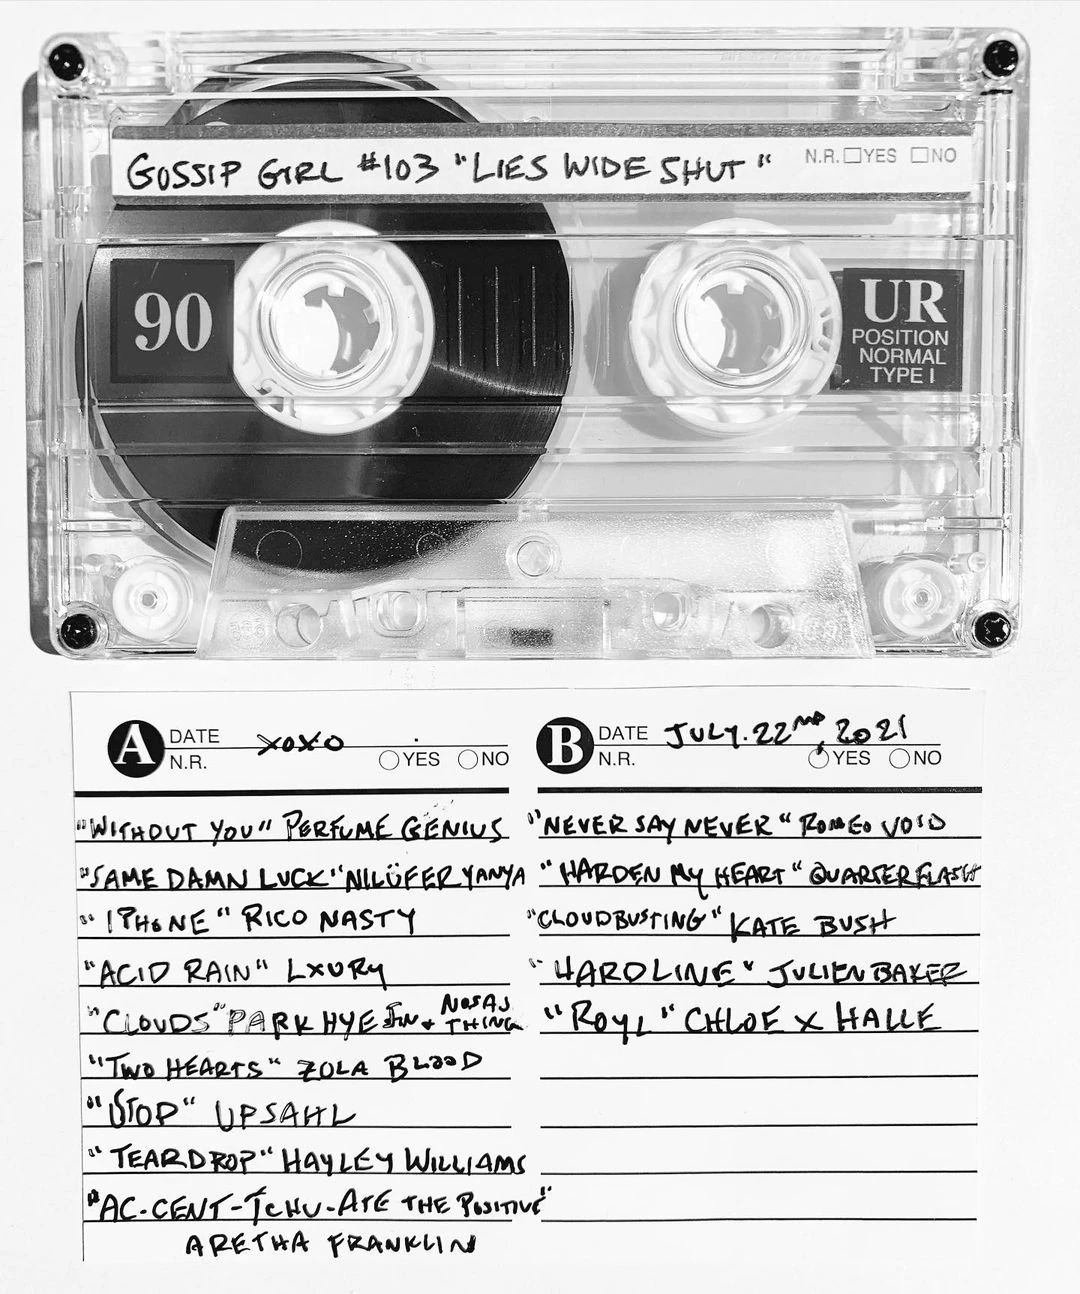 GOSSIP GIRL #103 "LIES WIDE SHUT"
N.R. YES NO
90
UR
POSITION
NORMAL
TYPE I
A DATE XOXO
N.R. YES NO
"WITHOUT YOU" PERFUME GENIUS
"SAME DAMN LUCK" NILÜFER YANYA
"IPHONE" RICO NASTY
"ACID RAIN" LXURY
"CLOUDS" PARK HYE JIN + NOSAJ THING
"TWO HEARTS" ZOLA BLOOD
"STOP" UPSAHL
"TEARDROP" HAYLEY WILLIAMS
"AC-CENT-TCHU-ATE THE POSITIVE"
ARETHA FRANKLIN
B DATE JULY. 22ND, 2021
N.R. YES NO
"NEVER SAY NEVER" ROMEO VOID
"HARDEN MY HEART" QUARTERFLASH
"CLOUDBUSTING" KATE BUSH
"HARDLINE" JULIEN BAKER
"ROYL" CHLOE X HALLE